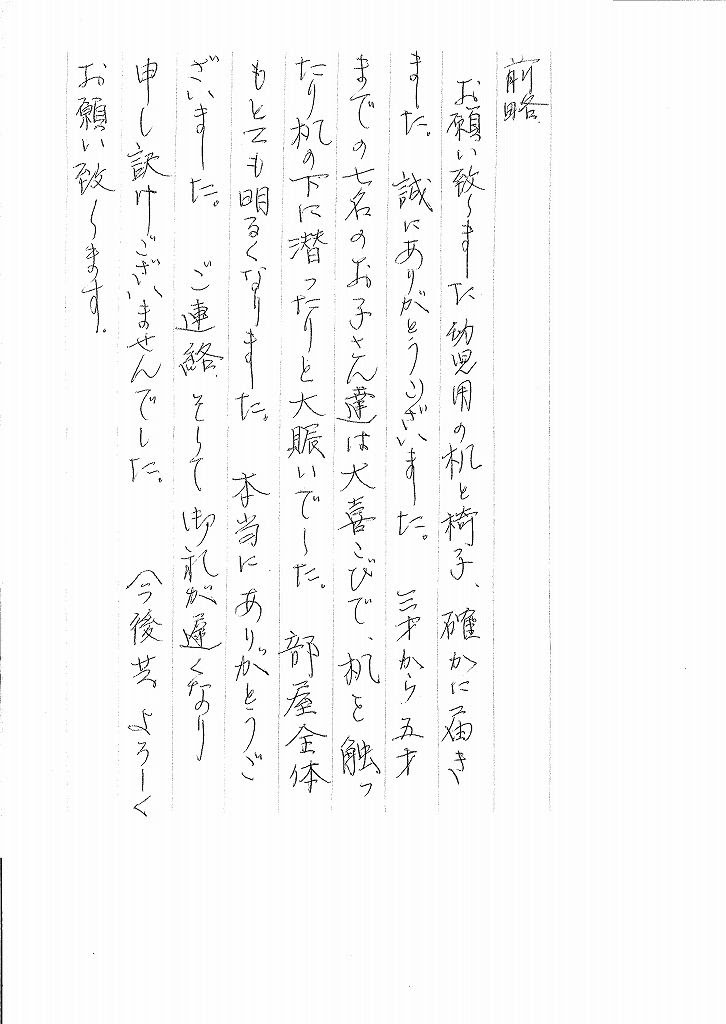 前略
お願い致しました幼児用の机と椅子、確かに届き
ました。誠にありがとうございました。三才から五才
までの七名のお子さん達は大喜こびで、机を触っ
たり机の下に潜ったりと大賑いでした。部屋全体
もとても明るくなりました。本当にありがとうご
ざいました。ご連絡そして御礼が遅くなり
申し訳けございませんでした。今後共よろしく
お願い致します。